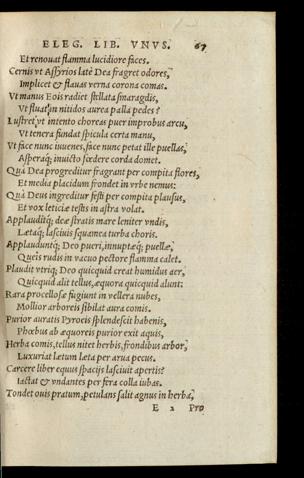 ELEG. LIB. VNVS. 67
Et renouat flamma lucidiore faces.
Cernis vt Assyrios latè Dea fragret odores,
Implicet & flauas verna corona comas.
Vt manus Eois radiet stellata smaragdis,
Vt fluat in nitidos aurea palla pedes?
Lustret, vt intento choreas puer improbus arcu,
Vt tenera fundat spicula certa manu,
Vt face nunc iuuenes, face nunc petat ille puellas,
Asperaq; inuicto foedere corda domet.
Quà Dea progreditur fragrant per compita flores,
Et media placidum frondet in vrbe nemus:
Quà Deus ingreditur festi per compita plausus,
Et vox leticiæ testis in astra volat.
Applauditq; deæ stratis mare leniter vndis,
Lætaq; lasciuis squamea turba choris.
Applauduntq; Deo pueri, innuptæq; puellæ,
Queis rudis in vacuo pectore flamma calet.
Plaudit vtriq; Deo quicquid creat humidus aer,
Quicquid alit tellus, æquora quicquid alunt:
Rara procellosæ fugiunt in vellera nubes,
Mollior arboreis sibilat aura comis.
Purior auratis Pyroeis splendescit habenis,
Phœbus ab æquoreis purior exit aquis,
Herba comis, tellus nitet herbis, frondibus arbor,
Luxuriat lætum læta per arua pecus.
Carcere liber equus spacijs lasciuit apertis?
Iactat & vndantes per fera colla iubas.
Tondet ouis pratum, petulans salit agnus in herba,
E 2 Pro